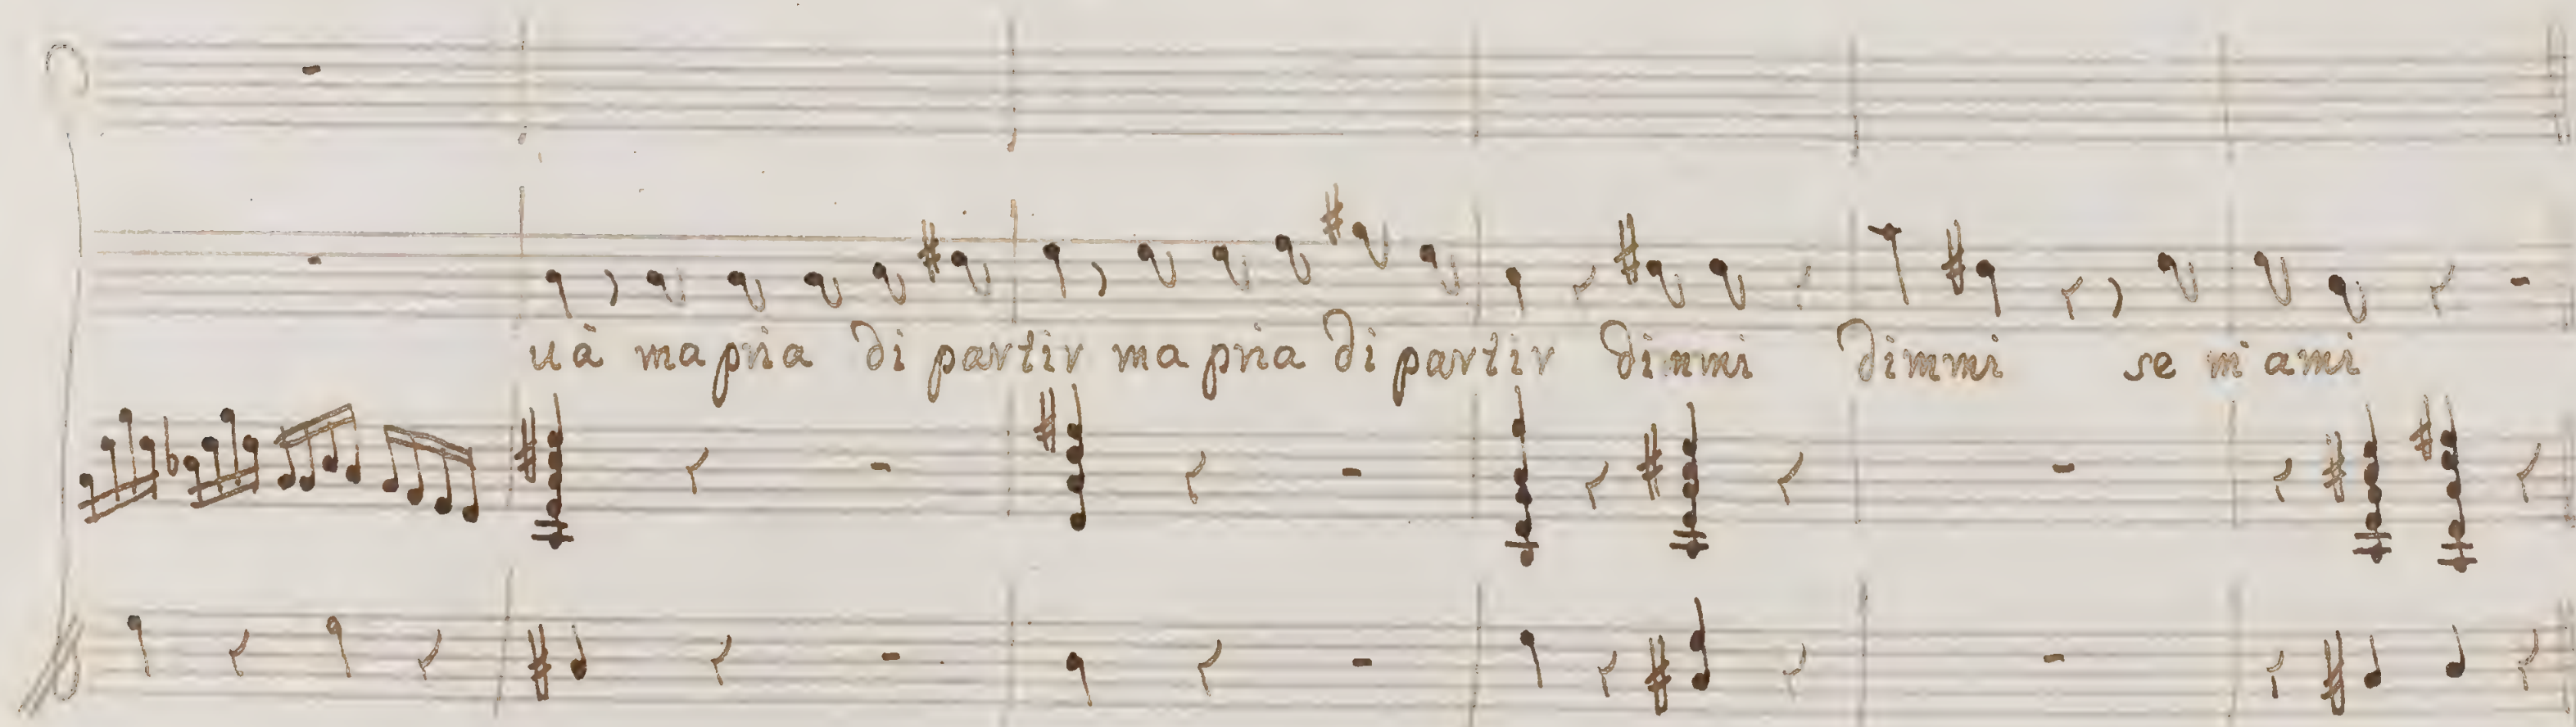 uà ma pria di partir ma pria di partir dimmi dimmi se m'ami